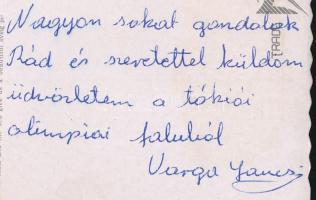 Nagyon sokat gondolok
Rád és szeretettel küldöm
üdvözletem a tókiói
olimpiai faluból
Varga Jancsi